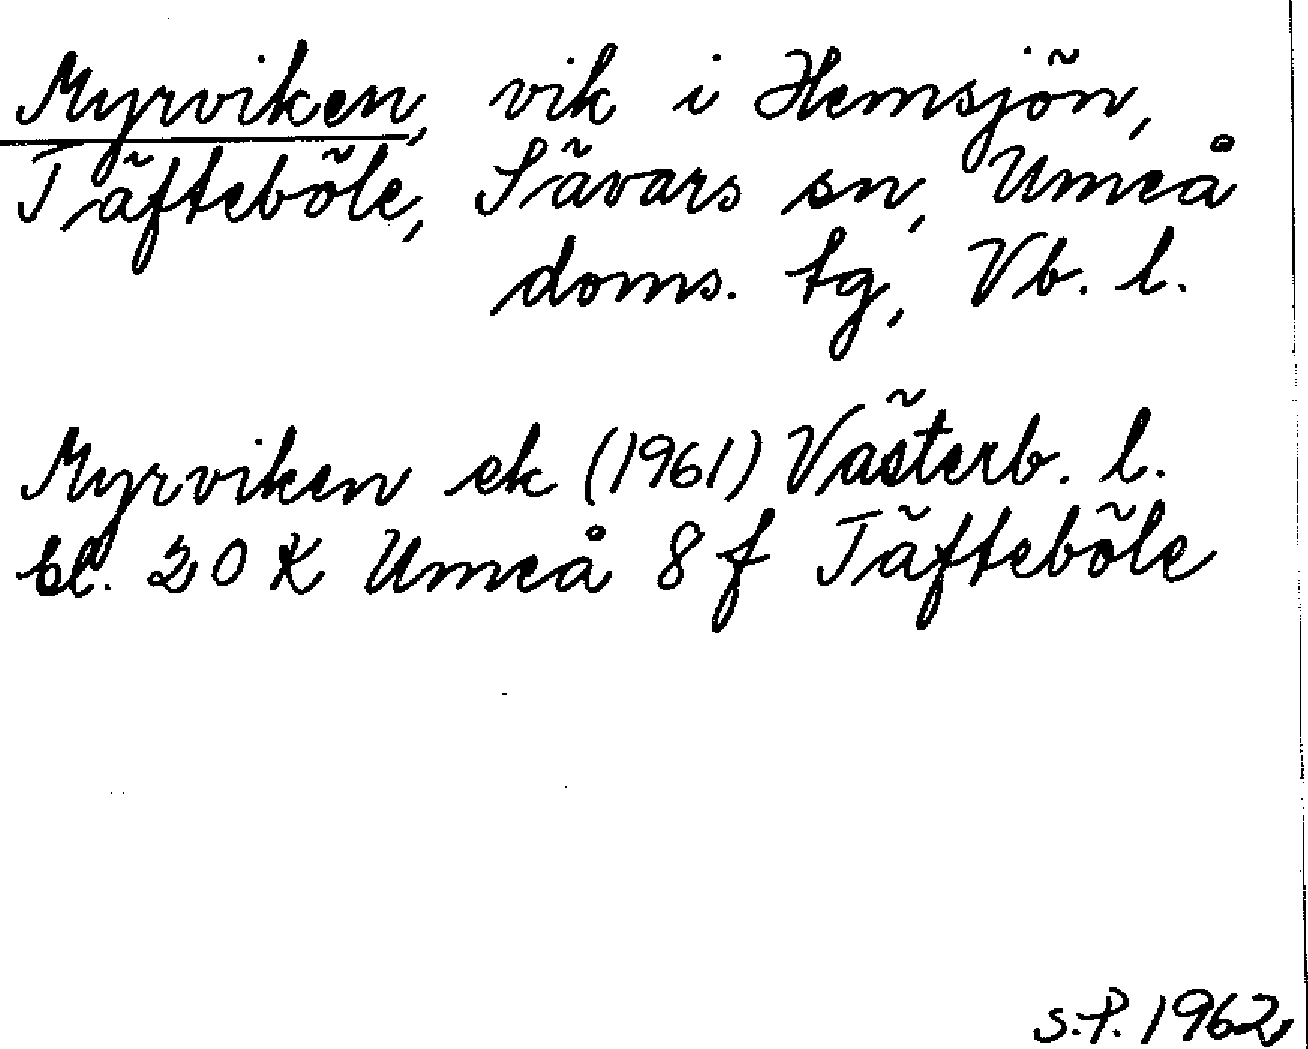 Myrviken, vik i Hemsjön,
Täfteböle, Sävars sn, Umeå
doms. tg, Vb. l.
Myrviken ek (1961) Västerb. l.
bl. 20 K Umeå 8 f Täfteböle
S.P. 1962